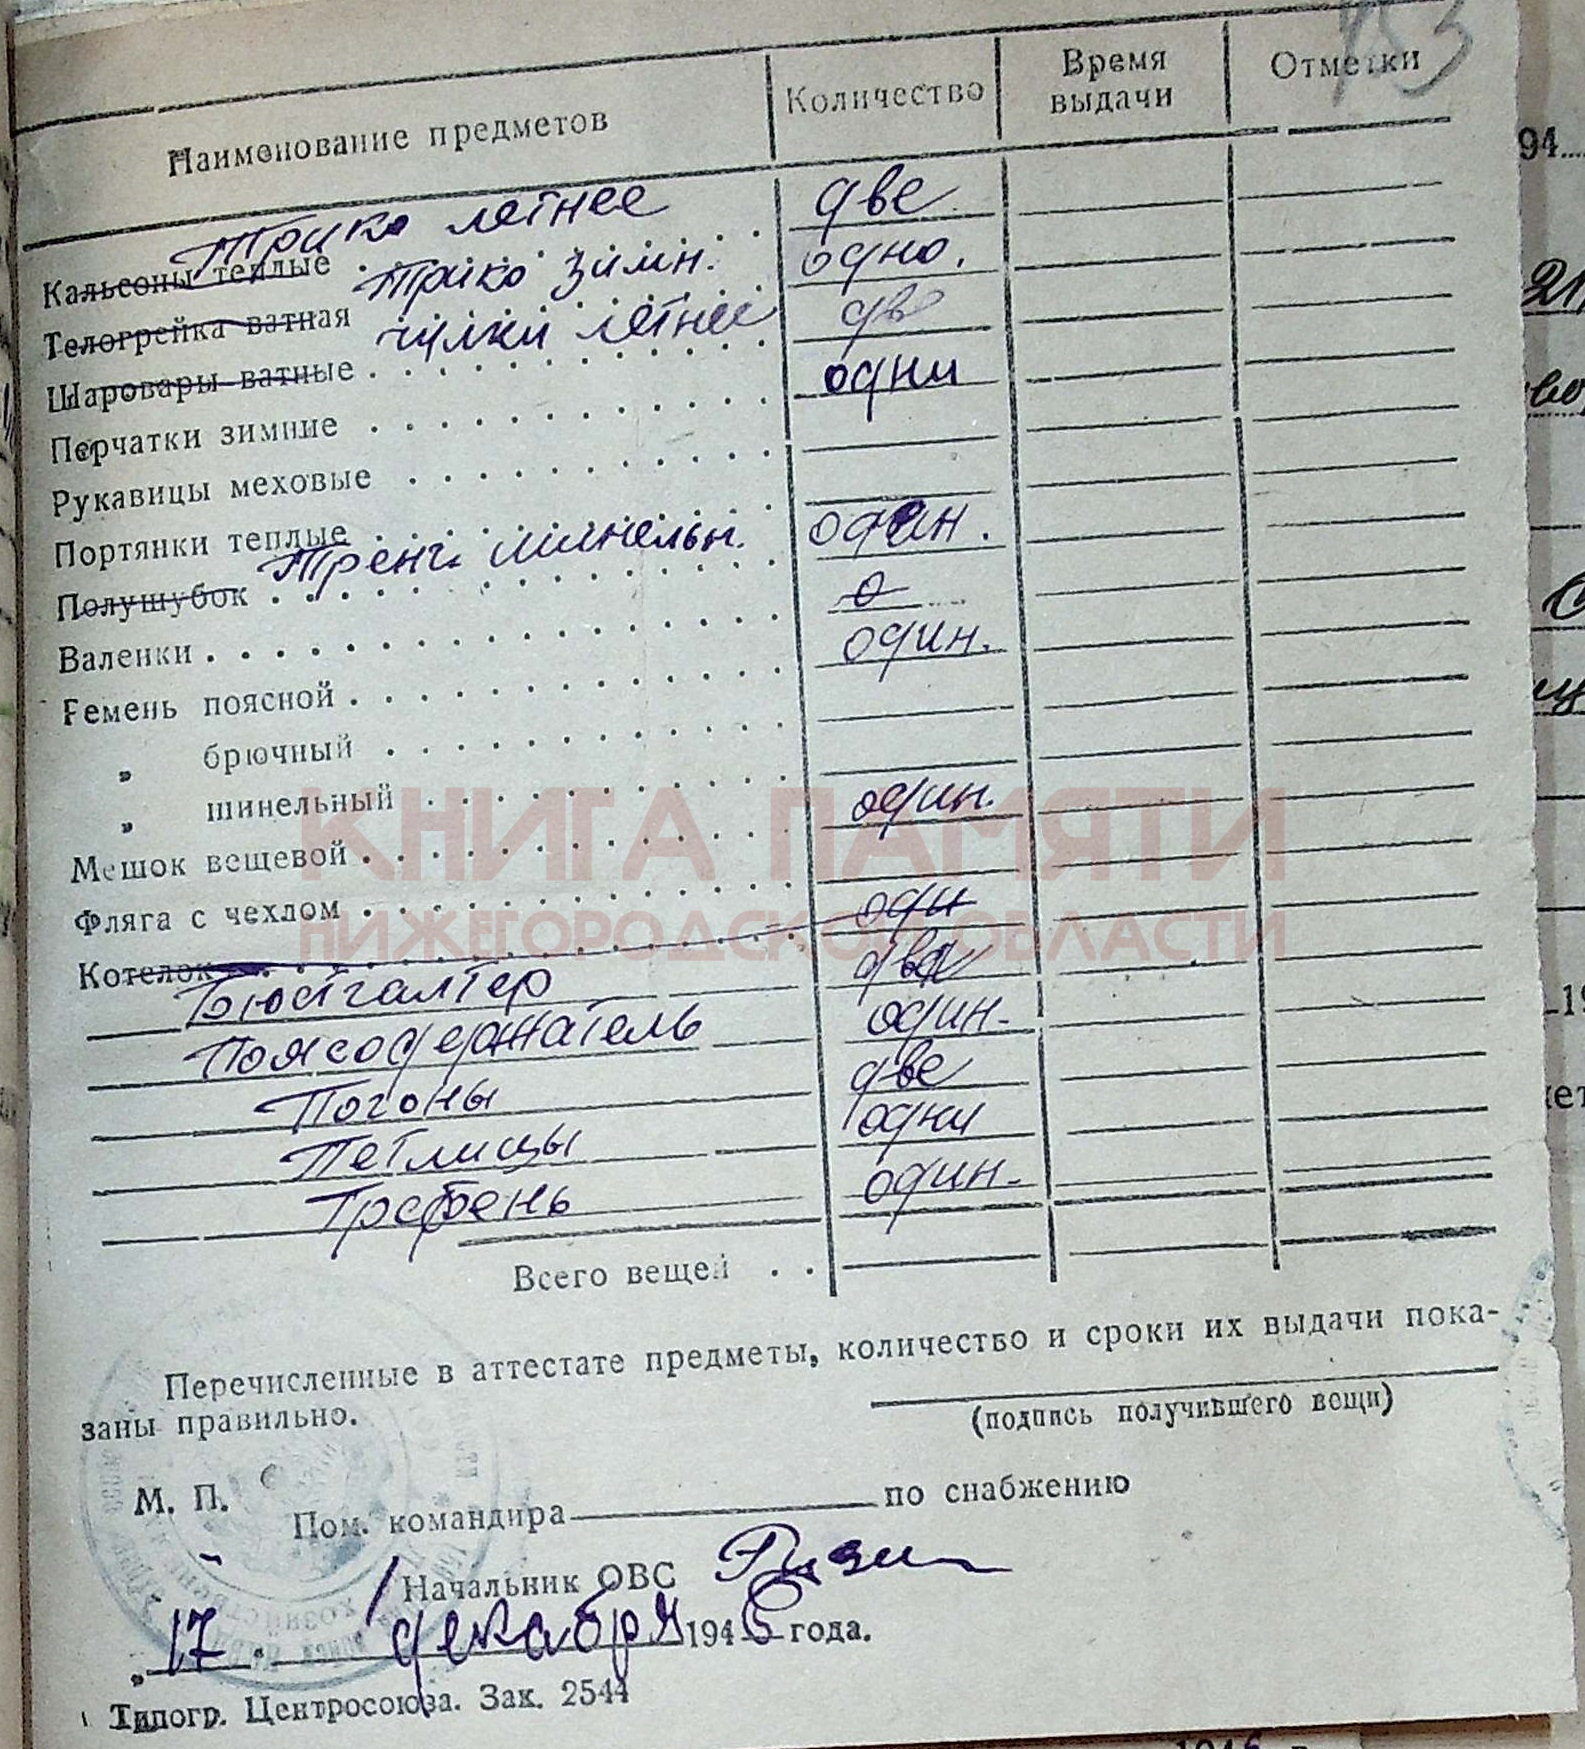 153
Наименование предметов Количество Время выдачи Отметки
Трико летнее две
Кальсоны теплые Трико зимн. одно.
Телогрейка ватная чулки летнее дв
Шаровары ватные одни
Перчатки зимние
Рукавицы меховые
Портянки теплые один.
Полушубок Тренч шинельн. о
Валенки один.
Ремень поясной
„ брючный
„ шинельный один.
Мешок вещевой
Фляга с чехлом оди
Котелок два
Бюстгалтер один.
Поясодержатель две
Погоны одни
Петлицы один.
Гребень
Всего вещей
Перечисленные в аттестате предметы, количество и сроки их выдачи пока-
заны правильно.
(подпись получившего вещи)
М. П.
Пом. командира по снабжению
Начальник ОВС
„17" декабря 1945 года.
Типогр. Центросоюза. Зак. 2544
КНИГА ПАМЯТИ
НИЖЕГОРОДСКОЙ ОБЛАСТИ
94
21
19